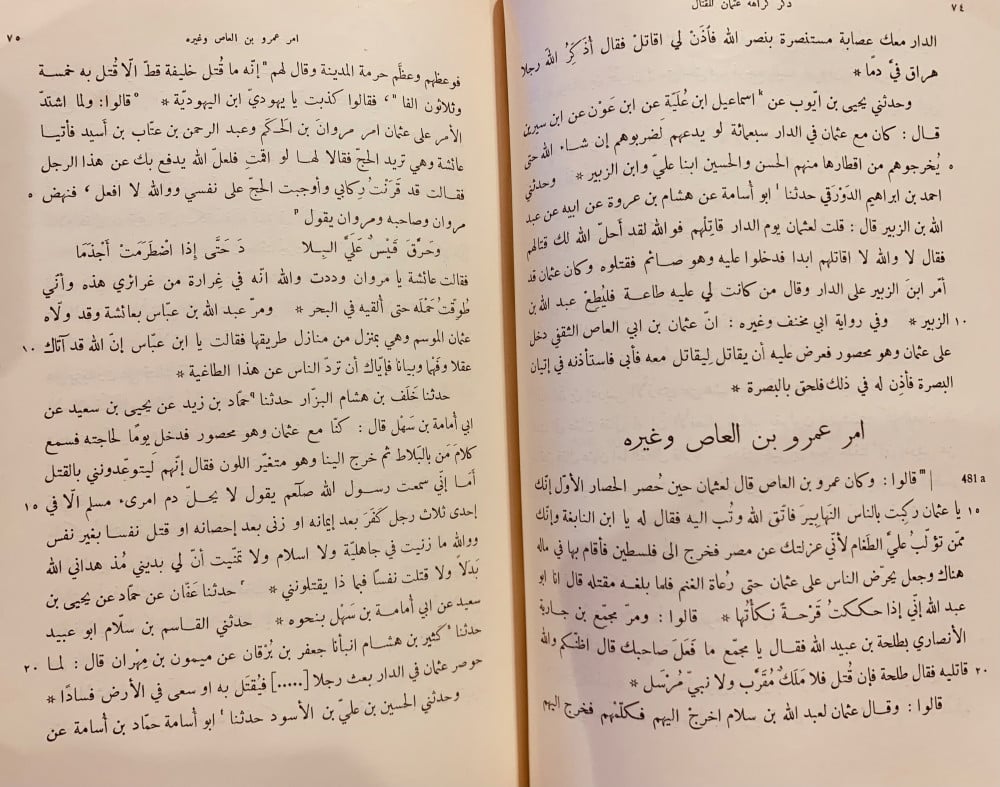 ٧٤
ذكر كراهة عثمان للقتال
الدار معك عصابة مستنصرة بنصر الله فأذن لي اقاتل فقال أذكّر الله رجلا
هراق فيّ دما *
وحدثني يحيى بن ايّوب عن اسماعيل ابن عُلَيّة عن ابن عَوْن عن ابن سيرين
قال : كان مع عثمان في الدار سبعمائة لو يدعهم لضربوهم إن شاء الله حتى
يُخرجوهم من اقطارها منهم الحسن والحسين ابنا عليّ وابن الزبير * وحدثني ٥
احمد بن ابراهيم الدَوْرَقي حدثنا ابو أسامة عن هشام بن عروة عن ابيه عن عبد
الله بن الزبير قال : قلت لعثمان يوم الدار قاتِلْهم فوالله لقد أحلّ الله لك قتالهم
فقال لا والله لا اقاتلهم ابدا فدخلوا عليه وهو صائم فقتلوه وكان عثمان قد
أمّر ابن الزبير على الدار وقال من كانت لي عليه طاعة فليُطِعْ عبد الله بن
الزبير * وفي رواية ابي مخنف وغيره : انّ عثمان بن ابي العاص الثقفي دخل ١٠
على عثمان وهو محصور فعرض عليه أن يقاتل ليقاتل معه فأبى فاستأذنه في إتيان
البصرة فأذن له في ذلك فلحق بالبصرة *
امر عمرو بن العاص وغيره
481 a | قالوا : وكان عمرو بن العاص قال لعثمان حين حُصر الحصار الأوّل إنّك
يا عثمان ركبت بالناس النهابير فاتق الله وتُب اليه فقال له يا ابن النابغة وإنك ١٥
ممّن تؤلّب عليّ الطغام لأنّي عزلتك عن مصر فخرج الى فلسطين فأقام بها في ماله
هناك وجعل يحرّض الناس على عثمان حتى رُعاة الغنم فلما بلغه مقتله قال انا ابو
عبد الله إنّي إذا حككتُ قَرْحةً نكأتُها * قالوا : ومرّ مجمّع بن جارية
الأنصاري بطلحة بن عبيد الله فقال يا مجمّع ما فَعَلَ صاحبك قال اظنّكم والله
قاتليه فقال طلحة فإن قُتل فلا مَلَكٌ مُقَرَّب ولا نبيّ مُرْسَل * ٢٠
قالوا : وقال عثمان لعبد الله بن سلام اخرجْ اليهم فكلّمْهم فخرج اليهم
امر عمرو بن العاص وغيره
٧٥
فوعظهم وعظّم حرمة المدينة وقال لهم "إنّه ما قُتل خليفة قطّ الّا قُتل به خمسة
وثلاثون الفا"، فقالوا كذبت يا يهوديّ ابن اليهوديّة * قالوا : ولما اشتدّ
الأمر على عثمان امر مروان بن الحَكَم وعبد الرحمن بن عتّاب بن أَسيد فأتيا
عائشة وهي تريد الحجّ فقالا لها لو اقمتِ فلعلّ الله يدفع بك عن هذا الرجل
فقالت قد قَرَنْتُ رِكابي وأوجبت الحجّ على نفسي ووالله لا افعل، فنهض ٥
مروان وصاحبه ومروان يقول
وَحَرَّقَ قَيْسٌ عَلَيَّ البِلا دَ حَتَّى إذا اضْطَرَمَتْ أَجْذَمَا
فقالت عائشة يا مروان وددت والله انّه في غِرارة من غرائري هذه وأنّي
طُوّقتُ حَمْله حتى ألقيه في البحر * ومرّ عبد الله بن عبّاس بعائشة وقد ولّاه
عثمان الموسم وهي بمنزل من منازل طريقها فقالت يا ابن عبّاس إن الله قد آتاك ١٠
عقلا وفَهْما وبيانا فإيّاك أن تردّ الناس عن هذا الطاغية *
حدثنا خَلَف بن هشام البزّار حدثنا حمّاد بن زيد عن يحيى بن سعيد عن
ابي أُمامة بن سَهْل قال : كنّا مع عثمان وهو محصور فدخل يومًا لحاجته فسمع
كلامَ مَن بالبلاط ثم خرج الينا وهو متغيّر اللون فقال إنّهم ليتوعّدونني بالقتل
أمَا إنّي سمعت رسول الله صلّعم يقول لا يحلّ دم امرىء مسلم الّا في ١٥
إحدى ثلاث رجل كَفَرَ بعد إيمانه او زنى بعد إحصانه او قتل نفسا بغير نفس
ووالله ما زنيت في جاهليّة ولا اسلام ولا تمنّيت أنّ لي بديني مُذ هداني الله
بَدَلا ولا قتلت نفسًا فبما ذا يقتلونني * حدثنا عَفّان عن حمّاد عن يحيى بن
سعيد عن ابي أُمامة بن سَهْل بنحوه * حدثني القاسم بن سلام ابو عبيد
حدثنا كثير بن هشام انبأنا جعفر بن بُرْقان عن ميمون بن مِهْران قال : لما ٢٠
حوصر عثمان في الدار بعث رجلا [.....] فيُقْتَل به او سعى في الأرض فسادًا *
وحدثني الحسين بن عليّ بن الأسود حدثنا ابو أسامة حمّاد بن أسامة عن